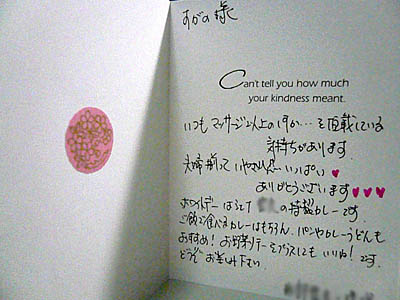 すがの 様へ
Can't tell you how much
your kindness meant.
いつも マッサージ以上の何か…を頂戴している
気持ちがあります
夫婦揃って いっぱい
ありがとうございます
ホワイトデー の特製カレーです
ご飯で食べるカレーはもちろん、パンやカレーうどんも
おすすめ! お野菜 をプラスしても いいね! です
どうぞ お楽しみ下さい